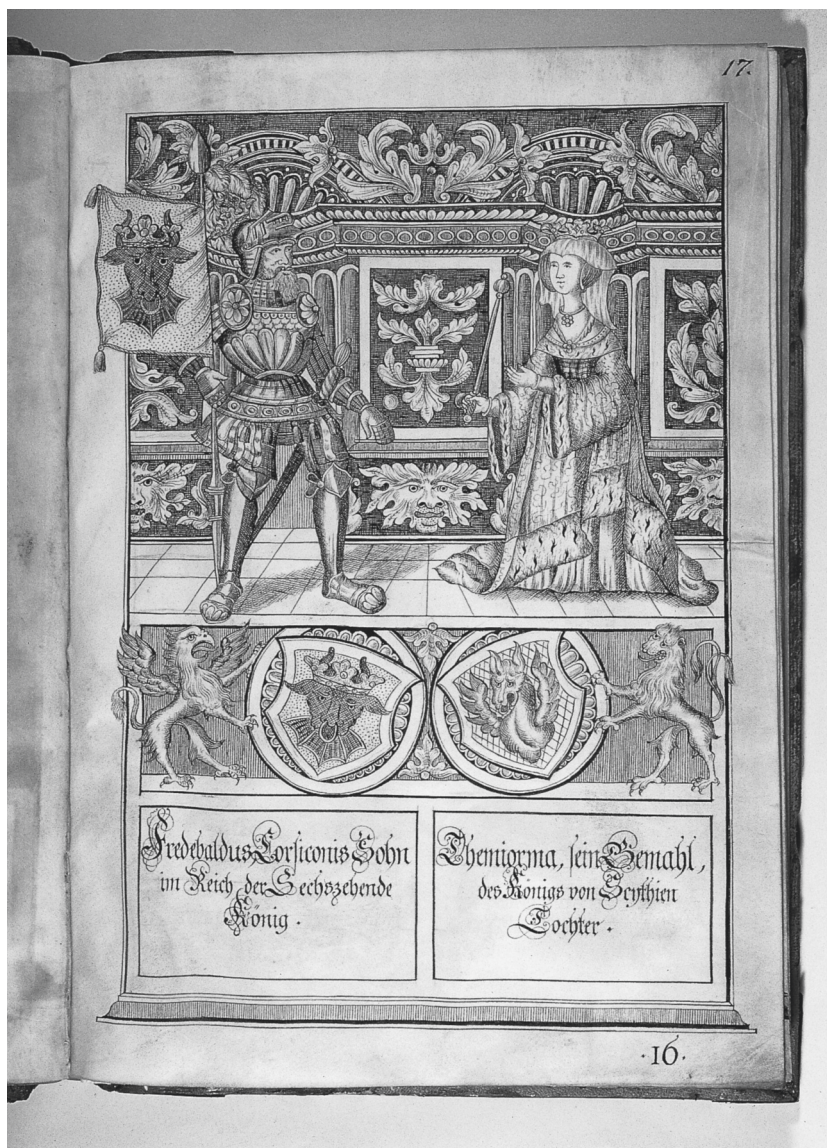 17.
Fredebaldus Corsiconis Sohn
im Reich der Sechszehende
König.
Themiorma, sein Gemahl,
des Königs von Scythien
Tochter.
·16·